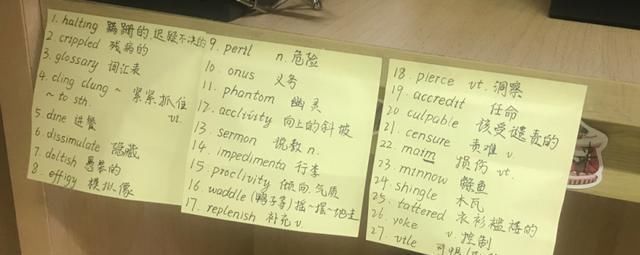 1. halting 蹒跚的,迟疑不决的
2. crippled 残病的
3. glossary 词汇表
4. cling clung ~ 紧紧抓住
~ to sth. vt.
5. dine 进餐
6. dissimulate 隐藏
7. doltish 愚笨的
8. effigy 模拟像
9. peril n. 危险
10. onus 义务
11. phantom 幽灵
12. acclivity 向上的斜坡
13. sermon 说教 n.
14. impedimenta 行李
15. proclivity 倾向,气质
16. waddle (鸭子等)摇一摇一地走
17. replenish 补充 v.
18. pierce vt. 洞察
19. accredit 任命
20. culpable 该受谴责的
21. censure 责难 v.
22. maim 损伤 vt.
23. minnow 鲦鱼
24. shingle 木瓦
25. tattered 衣衫褴褛的
26. yoke v. 控制
27. vile